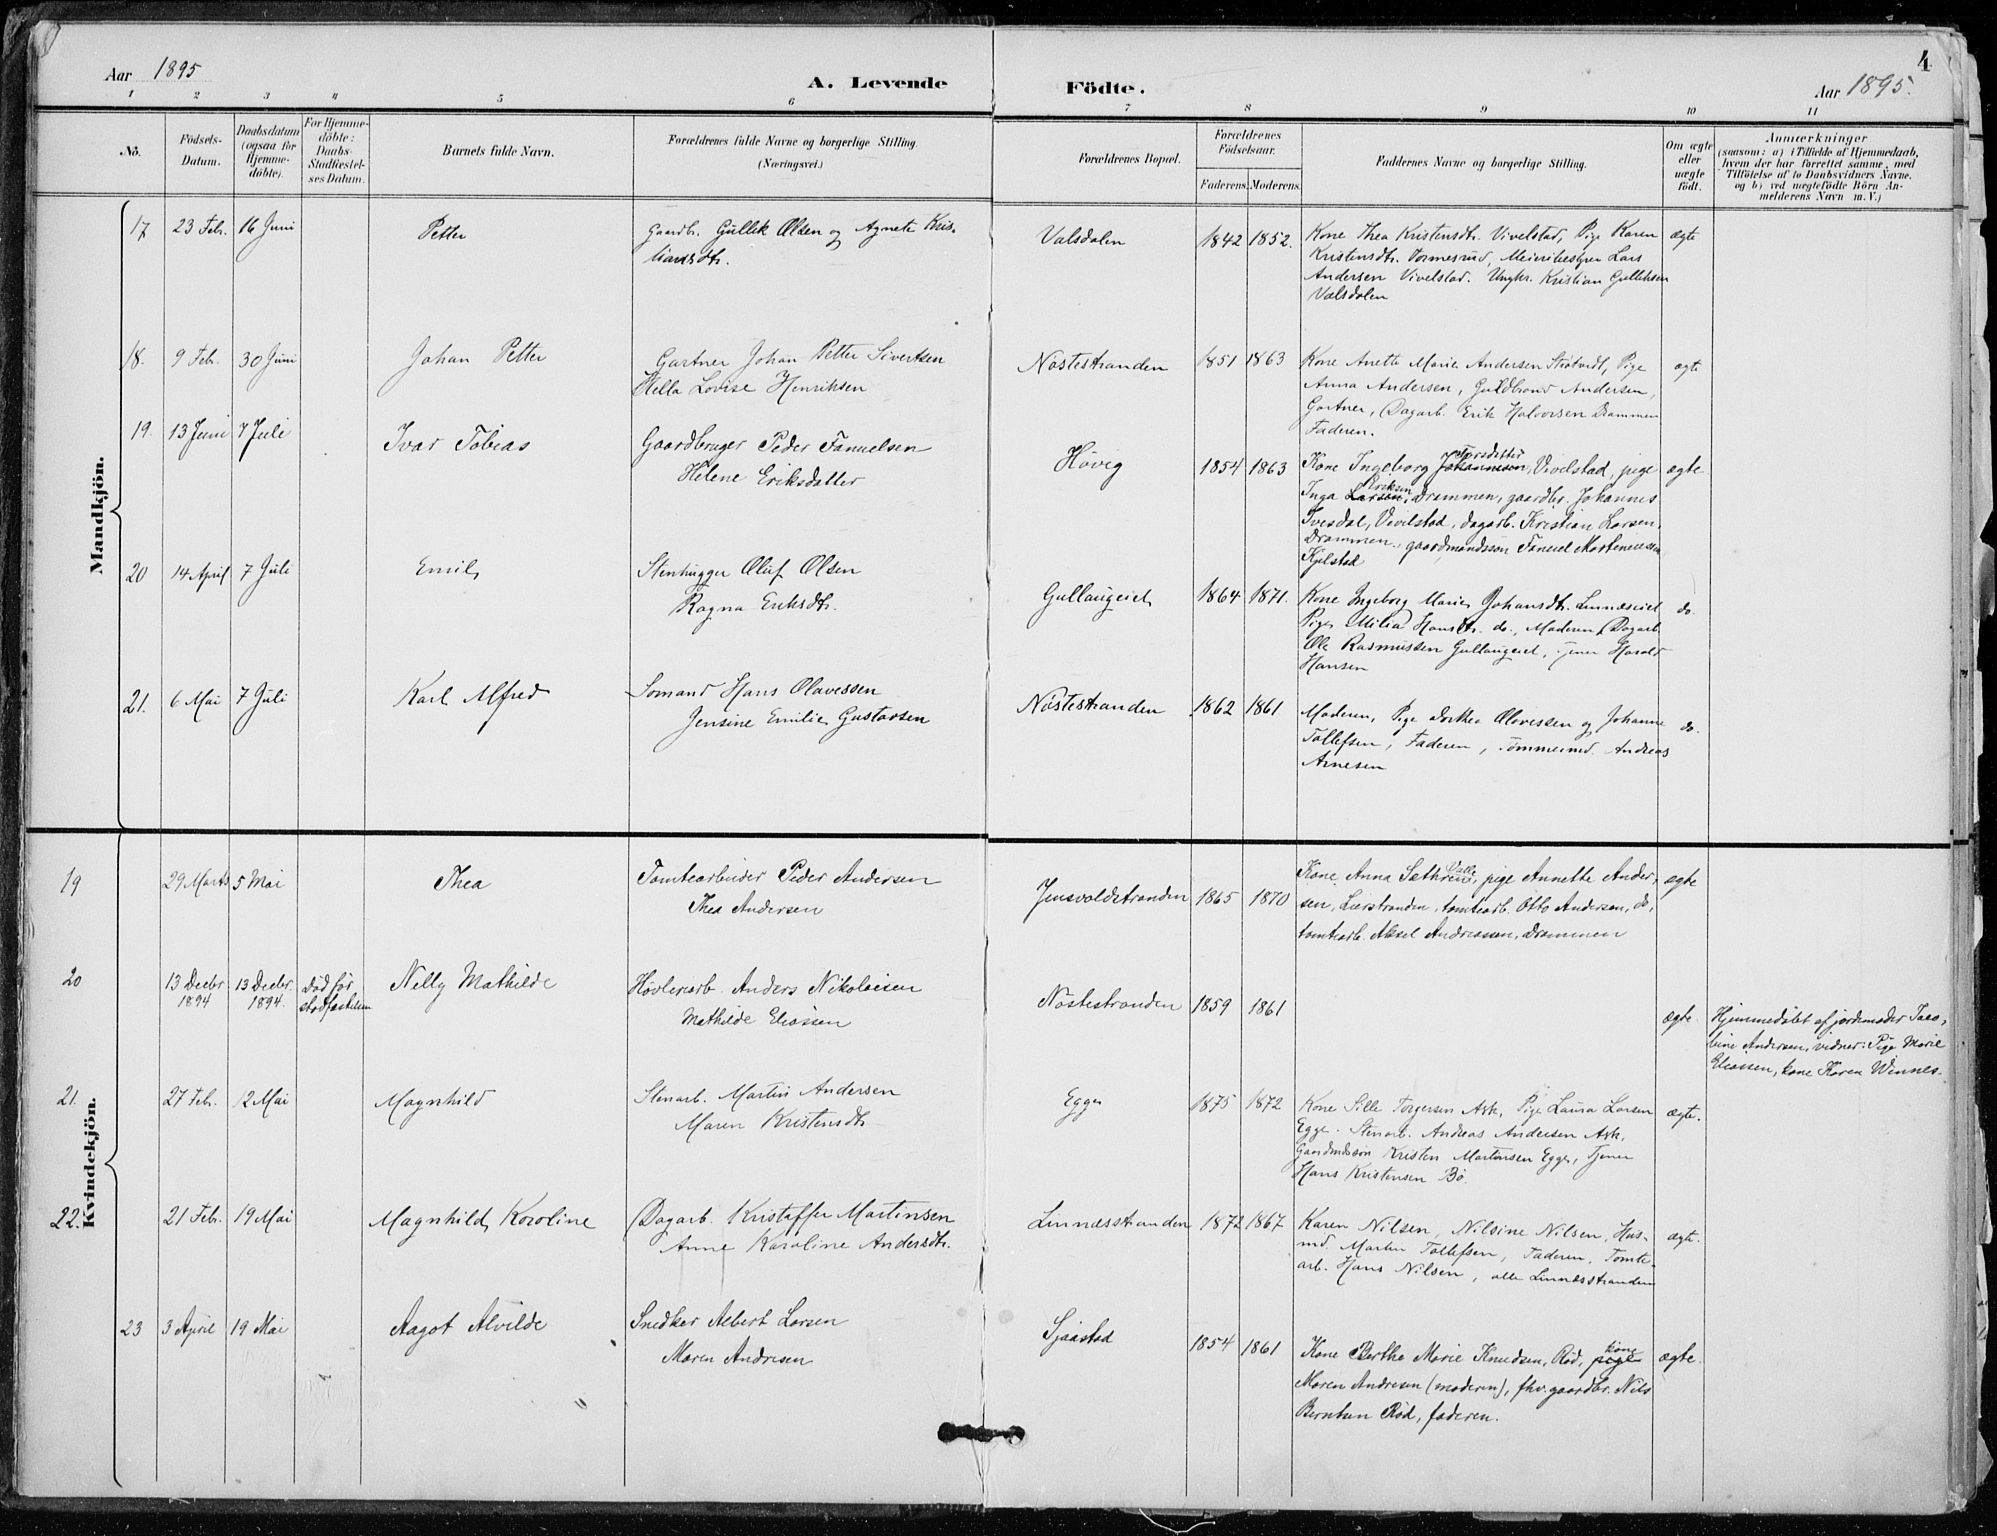 Aar 1895
A. Levende
Födte.
Aar 1895.
4
1 2 3 4 5 6 7 8 9 10 11
No.
Födsels-
Datum.
Daabsdatum
(ogsaa for
Hjemme-
döbte).
For Hjemme-
döbte:
Daabs-
Stadfæstel-
ses Datum.
Barnets fulde Navn.
Forældrenes fulde Navne og borgerlige Stilling.
(Næringsvei.)
Forældrenes Bopæl.
Forældrenes
Födselsaar.
Faderens. Moderens.
Faddernes Navne og borgerlige Stilling.
Om ægte
eller
uægte
födt.
Anmærkninger
(saasom: a) i Tilfælde af Hjemmedaab,
hvem der har forrettet samme, med
Tilföielse af to Daabsvidners Navne.
og b) ved uægtefödte Börn An-
melderens Navn m. V.)
Mandkjön.
17 23 Feb. 16 Juni Petter
Gaardb. Gullik Olsen og Agnete Kris-
tiansdtr.
Valsdalen 1842 1852.
Kone Thea Kristensdtr. Vivelstad, Pige Karen
Kristensdtr. Tormesrud, Meieribestyrer Lars
Andersen Vivelstad. Ungkr. Kristian Gulliksen
Valsdalen
ægte
18. 9 Feb. 30 Juni Johan Petter
Gartner Johan Petter Sivertsen
Hella Lovise Henriksen
Nøstestranden 1851 1863
Kone Anette Marie Andersen Støtvedt, Pige
Anna Andersen, Guldbrand Andersen,
Gartner, Dagarb. Erik Halvorsen Drammen
Faderen.
ægte
19. 13 Juni 7 Juli Ivar Tobias
Gaardbruger Peder Fanuelsen
Helene Eriksdatter
Høvig 1854 1863
Iversdatter
Kone Ingeborg Johannesen, Vivelstad, pige
Eriksen
Inga Larsen, Drammen, gaardbr. Johannes
Iversdal, Vivelstad, dagarb. Kristian Larsen,
Drammen, gaardmandssøn Fanuel Martiniussen
Kjelstad
ægte
20 14 April 7 Juli Emil
Stenhugger Olaf Olsen
Ragna Eriksdtr.
Gullaugeiet 1864 1871.
Kone Ingeborg Marie Johansdtr. Linnæseiet
Pige Milia Hansdtr. do., Moderen, Dagarb.
Ole Rasmussen Gullaugeiet, Tjener Harald
Hansen
do.
21. 6 Mai 7 Juli Karl Alfred
Sømand Hans Olavessen
Jensine Emilie Gustavsen
Nøstestranden 1862 1861
Moderen, Pige Dorthea Olavessen og Johanne
Tollefsen, Faderen, Tømmermd. Andreas
Arnesen
do.
Kvindekjön.
19 29 Marts 5 Mai Thea
Tomtearbeider Peder Andersen
Thea Andersen
Jensvoldstranden 1865 1870
Valle
Kone Anna Sæthren, pige Annette Ander-
sen, Lierstranden, tomtearb. Otto Andersen, do,
tomtearb. Aksel Andreassen, Drammen
ægte
20 13 Decbr. 1894 13 Decbr. 1894. Død før
stadfæstelsen
Nelly Mathilde
Høvleriarb. Anders Nikolaisen
Mathilde Eliassen
Nøstestranden 1859 1861
ægte.
Hjemmedøbt af jordemoder Jaco-
bine Andersen, vidner: Pige Marie
Eliassen, kone Karen Winnes.
21. 27 Feb. 12 Mai Magnhild
Stenarb. Martin Andersen
Maren Kristensdtr.
Egge 1875 1872
Kone Sille Torgersen Ask, Pige Laura Larsen
Egge. Stenarb. Andreas Andersen Ask,
Gaardmdssøn Kristen Martinsen Egge, Tjener
Hans Kristensen Bø.
ægte.
22. 21 Feb. 19 Mai Magnhild Karoline
Dagarb. Kristoffer Martinsen
Anne Karoline Andersdtr.
Linnæsstranden 1872 1867
Karen Nilsen, Nilsine Nilsen, Hus-
md. Martin Tollefsen, Faderen, Tomte-
arb. Hans Nilsen, alle Linnæsstranden
ægte.
23 3 April 19 Mai Aagot Alvilde
Snedker Albert Larsen
Maren Andresen
Sjaastad 1854 1861
kone
Kone Berthe Marie Knudsen, Rød, pige
Maren Andresen (moderen), fhv. gaardbr. Nils
Berntsen Rød, faderen.
ægte.